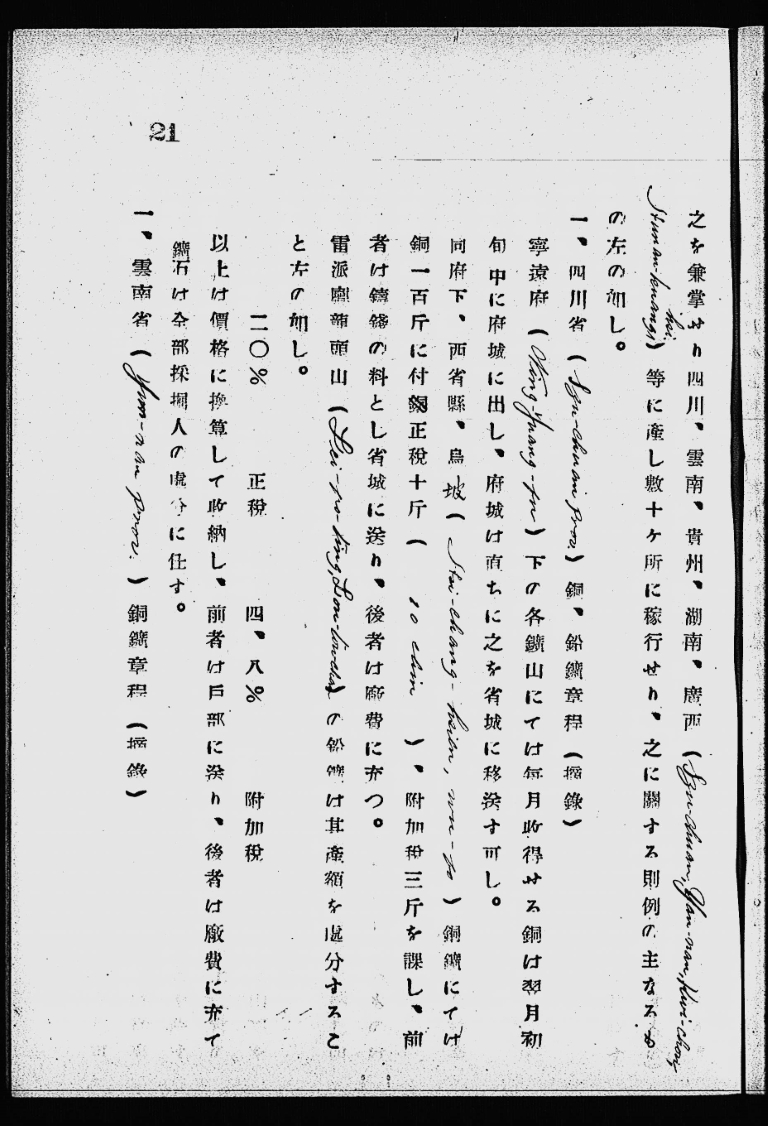 21
之を兼掌せり四川、雲南、貴州、湖南、廣西(Szu-chuan, Yun-nan, Kwi-chow,
Hunan-kuangsi) 等に產し數十ケ所に稼行せり、之に關する則例の主なるも
の左の如し。
一、四川省(Szu-chuan prov.)銅、鉛鑛章程(摘錄)
寧遠府(Ning-Yuang-fu)下の各鑛山にては每月收得せる銅は翌月初
旬中に府城に出し、府城は直ちに之を省城に移送す可し。
同府下、西省縣、烏坡(Hsi-chang-hsien, wu-po)銅鑛にては
銅一百斤に付銅正稅十斤(10 chin)、附加稅三斤を課し、前
者は鑄錢の料とし省城に送り、後者は廠費に充つ。
雷派廳龍頭山(Lei-po-ting, )の鉛鑛は其產額を處分するこ
と左の如し。
二〇% 正稅 四、八% 附加稅
以上は價格に換算して收納し、前者は戶部に送り、後者は廠費に充て
鑛石は全部採掘人の處分に任す。
一、雲南省(Yun-nan prov.)銅鑛章程(摘錄)